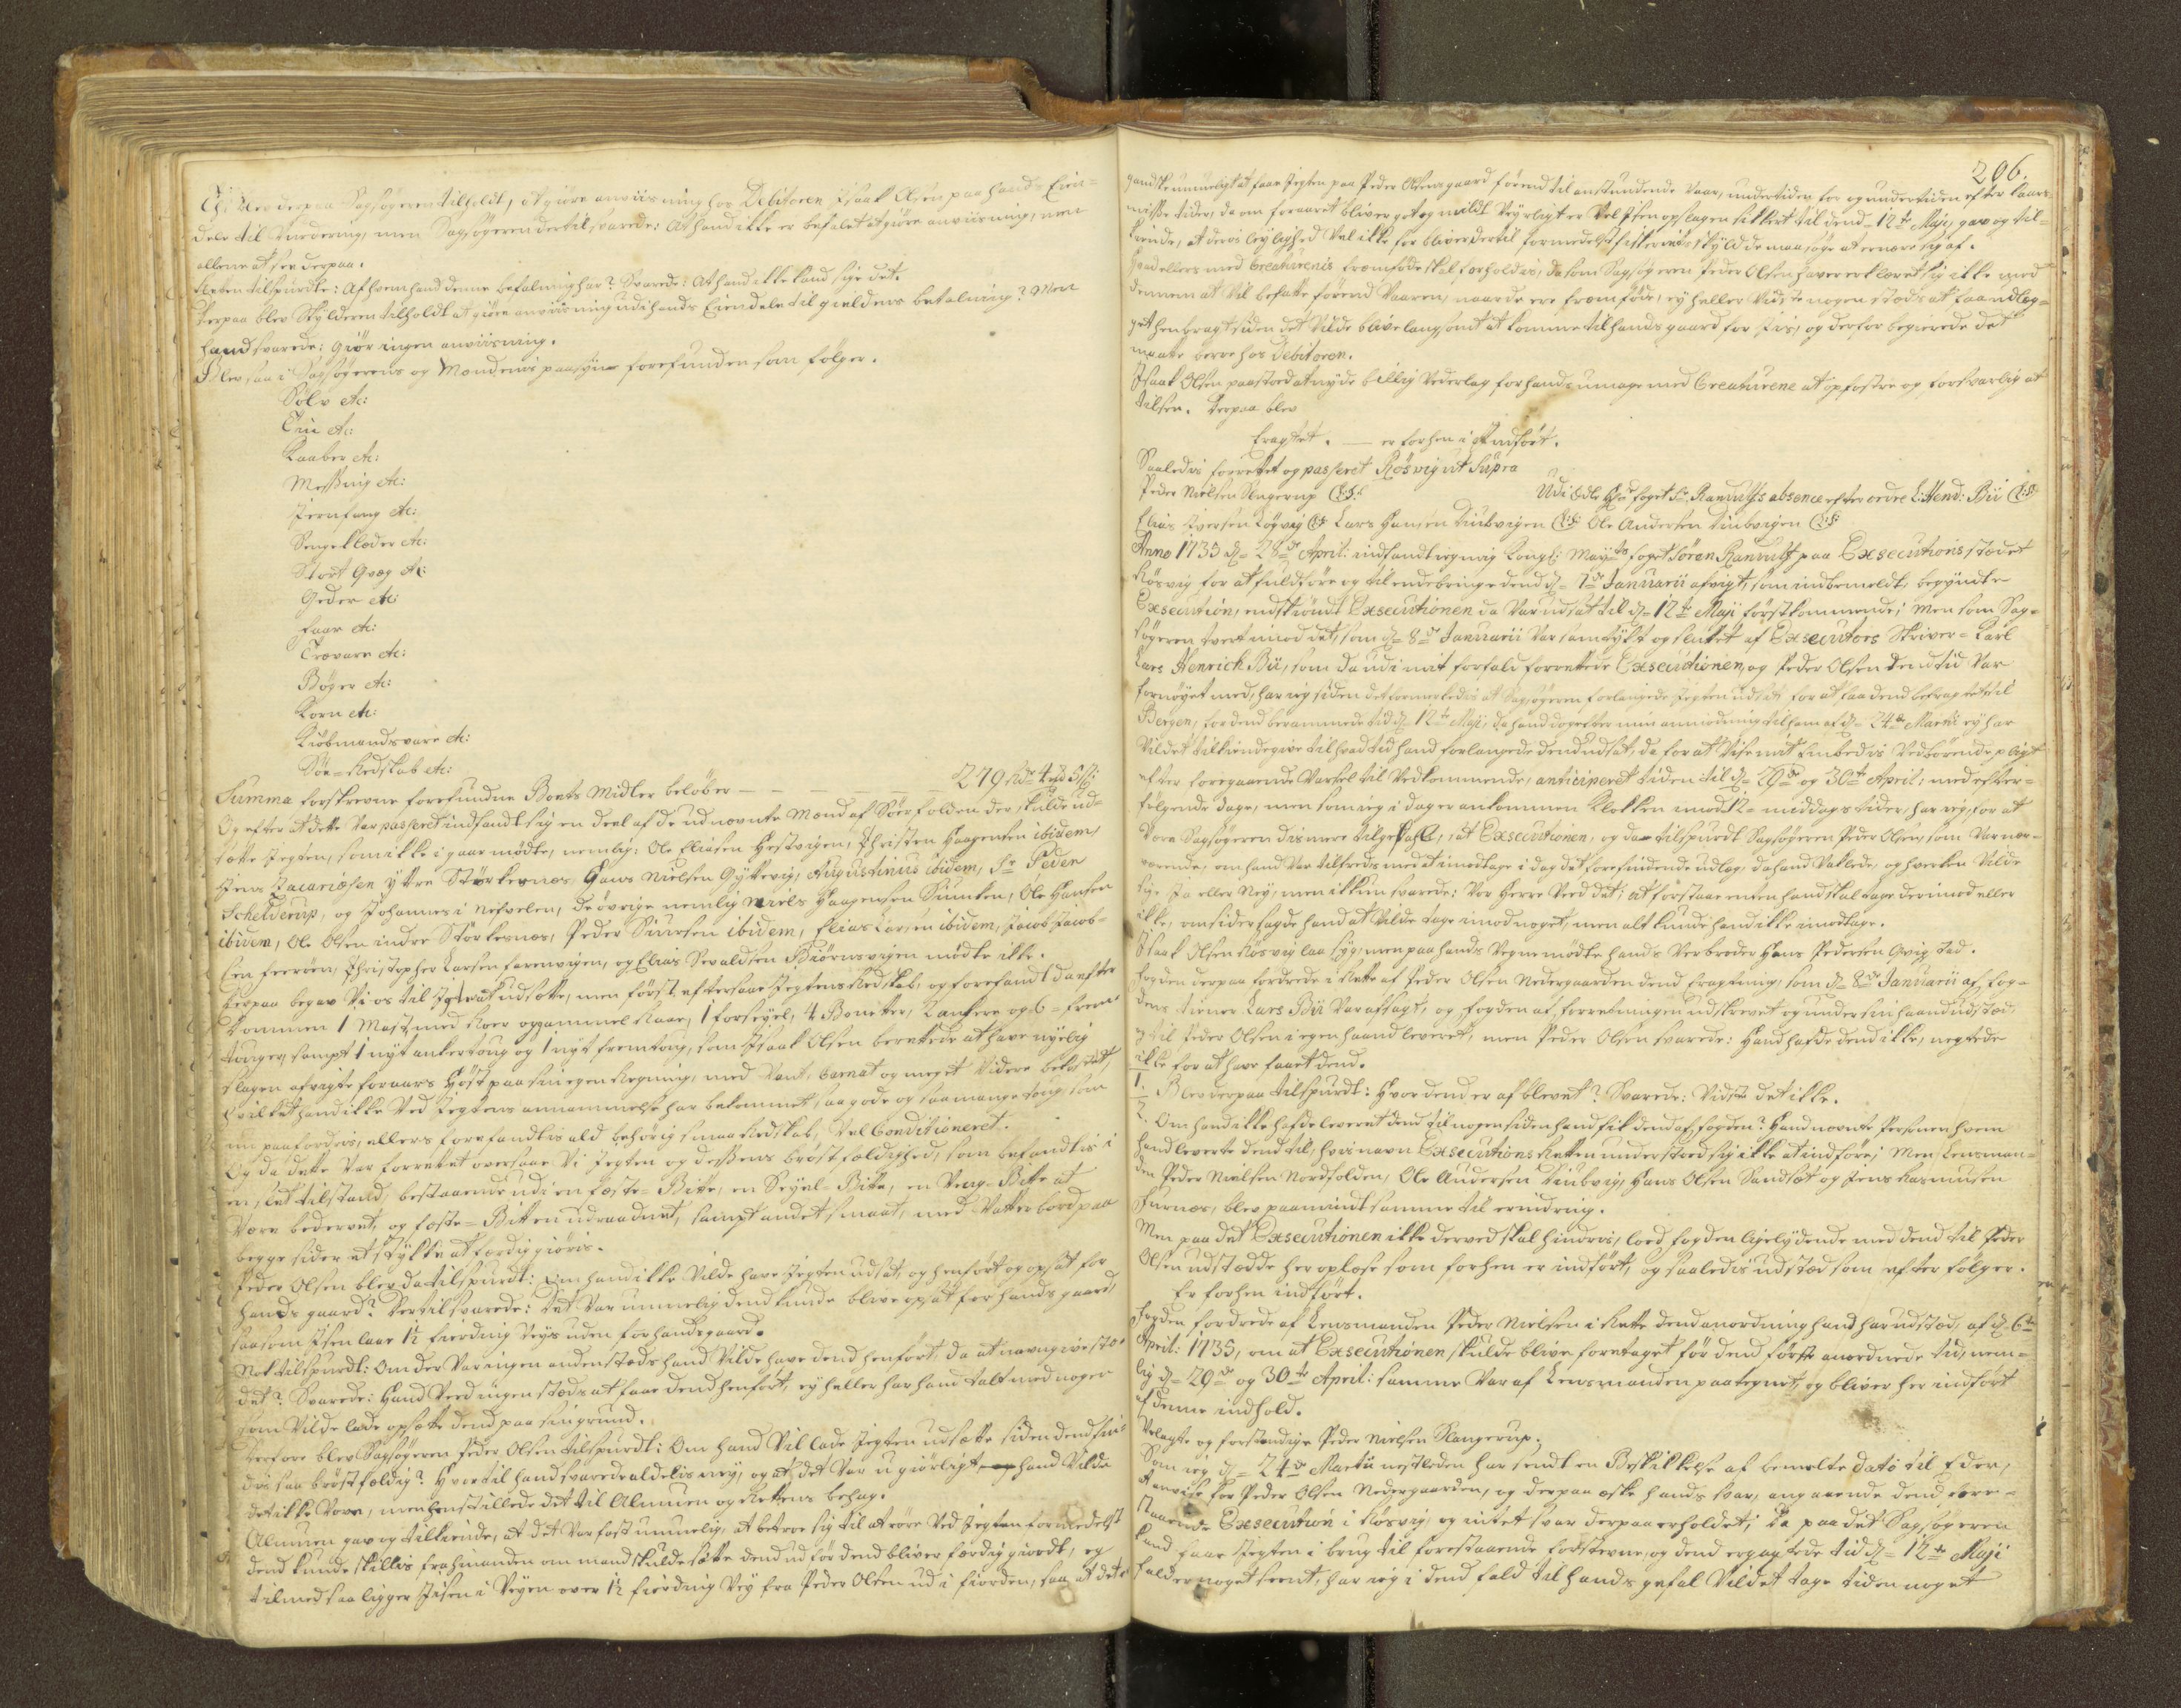 Og blev derpaa Sagsøgeren tilholdt, at giøre anviisning hos Debitoren Isaak Olsen paa hands Eien-
dele til Vurdering, men Sagsøgeren dertil svarede: At hand ikke er befalet at giøre anviisning, men
allene at see derpaa.
Retten tilspurdte: Af hvem hand denne befalning har? Svarede: At hand ikke kand sige det.
Derpaa blev Skylderen tilholdt at giøre anviisning udi hands Eiendele til gieldens betalning? Men
hand svarede: giør ingen anviisning.
Blev saa i Sagsøgerens og Mændenis paasyn forefunden som følger.
Sølv etc:
Tiin etc:
Kaaber etc:
Messing etc:
Jernfang etc:
Sengeklæder etc:
Stort Qvæg etc:
Geder etc:
Faar etc:
Trævare etc:
Bøger etc:
Korn etc:
Kiøbmandsvare etc:
Søe-Redskab etc:
Summa forskrevne forefundne Boets Midler beløber — — — 279 Rdr 4 mk 5 s:
Og efter at dette var passeret indfandt sig en deel af de udnævnte Mænd af Sørfolden der skulde ud-
sætte Jegten, som ikke i gaar mødte, nemlig: Ole Eliasen Hestvigen, Christen Haagensen ibidem,
Jens Zacariæsen Yttre Størkesnæs Hans Nielsen Gyltvig, Augustinus ibidem, Sr Peder
Schelderup, og Johannes i Nefvelen, de øvrige nemlig Niels Haagensen Siunken, Ole Hansen
ibidem, Ole Olsen indre Størkesnæs, Peder Siursen ibidem, Elias Larsen ibidem, Jacob Jacob-
sen Feeröen, Christopher Larsen Farenvigen, og Elias Sevaldsen Biørnsvigen mødte ikke.
Derpaa begav Vi os til Jegten at udsætte, men først eftersaae Jegtens Redskab, og forefandt da efter
kommen 1 Mast, med Roer og gammel Raae, 1 forseyel, 4 Bonetter, 2 ankere og 6 - frem-
touger, sampt 1 nyt ankertoug og 1 nyt fremtoug, som Isaak Olsen berettede at have nyelig
slagen afvigte foraars Høst paa sin egen Regning, med Vant, Barnat og meget Videre bekostet,
hvilket hand ikke Ved Jegtens annammelse har bekommet, saa gode og saa mange toug som
nu paafordris, ellers forefandtis ald behørig smaa Redskab, Vel Conditioneret.
Og da dette var forrettet oversaae Vi Jegten og dessens brøstfældighed, som befandtis i
en slet tilstand, bestaaende udi en Feste-Bitte, en Seyel-Bitte, en Veng-Bitte at
være bedervet, og Feste-Bitten udraadnet, sampt andet smaat, med Vatterbord paa
begge sider et stykke at færdiggiøris.
Peder Olsen blev da tilspurdt: Om hand ikke Vilde have Jegten udsat, og henført og opsat, for
hands gaard? Dertil svarede: det Var umuelig dend kunde blive opsat for hands gaard,
saasom Jisen laae 1½ fierding Veys uden for hands gaard.
Nok tilspurdt: Om der Var ingen anden stæds hand Vilde have dend henført, da at navngive stæ-
det? Svarede: Hand Veed ingen stæds at faae dend henført, ey heller har hand talt med nogen
som Vilde lade opsætte dend paa sin grund.
Derfore blev Sagsøgeren Peder Olsen tilspurdt: Om hand Vil lade Jegten udsætte siden dend fin-
dis saa brøstfældig? Hvortil hand svarede aldelis ney, og at det Var ugiørligt, hand Vilde
det ikke Vove, men henstillede det til Almuen og Rettens behag.
Almuen gav og tilkiende, at det Var fast umuelig, at betroe sig til at røre Ved Jegten formedelst
dend kunde skillis fra hinanden om mand skulde sætte dend ud før dend bliver færdig giordt, og
tilmed saa ligger Jisen i Veyen over 1½ fierding Vey fra Peder Olsen ud i fiorden, saa at det er
206.
gandske umueligt at faae Jegten paa Peder Olsens gaard førend til anstundende Vaar, undertiden for og undertiden efter Kaars-
misse tider, da om foraaret bliver got og mildt Veyrligt er Vel Isen opslagen sikkert til dend 12te Maji, gav og til-
kiende, at deris leylighed Vel ikke før bliver dertil formedelst fiskerietz skyld de maa søge at ernære sig af.
Hvad ellers med Creaturenis fremføde skal forholdes, da som Sagsøgeren Peder Olsen haver erklæret sig ikke med
dennem at Vil befatte førend Vaaren, naar de ere fremføde, ey heller Vidste nogen stæds at faae udlæg-
get henbragt siden det Vilde blive langsomt at komme til hands gaard for Jis, og derfor begierede det
maatte bero hos Debitoren.
Isaak Olsen paastoed at nyde billig Vederlag for hands umage med Creaturene at opfostre og forsvarlig at
tilsee. Derpaa blev
Eragtet. — er forhen indført.
Saaledis forrettet og passeret Røsvig ut Supra
Peder Nielsen Slengerup (L:S: Udi Edle Hr. fogd Sr. Ranvulfs absence efter ordre L: Hend: Bii (L:S:
Elias Iversen Løgvig (L:S: Lars Hansen Diubvigen (L:S: Ole Andersen Diubvigen (L:S:
Anno 1735 d= 28de April: indfandt ieg mig Kongl: Mayts foget Søren Ranvulf paa Exsecutions stædet
Røsvig for at fuldføre og til endebringe dend d= 7de Januarii afvigt, som indbemeldt, begyndte
Exsecution, endskiøndt Exsecutionen da Var udsat til d= 12te Maji førstkommende; Men som Sag-
søgeren tvert imod det, som d= 8de Januarii Var samtykt og sluttet af Exsecutors Skriver-Karl
Lars Henrich Bii, som da udi mit forfald forrettede Exsecutionen, og Peder Olsen dend tid Var
fornøyet med, har ieg siden det formerkedis at Sagsøgeren forlangede Jegten udsat for at faae dend befragtet til
Bergen, for dend berammede tid d= 12te Maji; da hand dog efter min anmodning til ham af d= 24de Martii ey har
Vildet tilkiendegive til hvad tid hand forlangede dend udsat, da for at Vise mit Embedis Vedbørende pligt
efter foregaaende Varsel til Vedkommende, anticiperet tiden til d= 29de og 30te April, med efter-
følgende dage, men som ieg i dag er ankommen klokken imod 12- middags tider, har ieg, for at
være Sagsøgeren dismere tilgefahl, at Exsecutionen, og da tilspurdt Sagsøgeren Peder Olsen, som Var nær-
værende, om hand Var tilfreds med at imodtage i dag det forefindende udlæg, da hand Vaklede, og hverken Vilde
sige Ja eller Ney, men ikkun svarede: Vor Herre Veed det; at forstaae enten hand skal tage derimod eller
ikke, omsider sagde hand at Vilde tage imod noget, men alt kunde hand ikke imodtage.
Isaak Olsen Røsvig laa syg, men paa hands Vegne mødte hands Verbroder Hans Pedersen Qvigstad.
Fogden derpaa fordrede i Rette af Peder Olsen Nedergaarden dend Eragtning, som d= 8de Januarii af fog-
dens tiener Lars Bii Var afsagt, og fogden af forretningen udskrevet og under sin haand udstæd,
og til Peder Olsen i egen haand leveret, men Peder Olsen svarede: Hand hafde dend ikke, negtede
ikke for at have faaet dend.
1. Blev derpaa tilspurdt: Hvor dend er afblevet? Svarede: Vidste det ikke.
2. Om hand ikke hafde leveret dend til nogen siden hand fik dend af fogden? Hand nævnte Personen hvem
hand leverte dend til, hvis navn Exsecutions Retten understoed sig ikke at indføre; Men Lensman-
den Peder Nielsen Nordfolden, Ole Andersen Diubvig, Hans Olsen Sandset og Jens Rasmusen
Furnæs, blev paamindt samme til erindring.
Men paa det Exsecutionen ikke derved skal hindres, loed fogden ligelydende med dend til Peder
Olsen udstædde her oplæse som forhen er indført, og saaledis udstæd som efter følger.
Er forhen indført.
Fogden fordrede af Lensmanden Peder Nielsen i Rette dend anordning hand har udstæd, af d= 6te
April: 1735, om at Exsecutionen skulde blive foretaget før dend først anordnede tid, nem-
lig d= 29de og 30te April: samme Var af Lensmanden paategnet, og bliver her indført
af denne indhold.
Velagte og forstandige Peder Nielsen Slangerup;
Som ieg d= 24de Martii nestleden har sendt en Beskikkelse af bemelte dato til Eder,
at anvise for Peder Olsen Nedergaarden, og derpaa æske hands svar, angaaende dend fore-
staaende Exsecution i Røsvig, og intet svar derpaa erholdet; Da paa det Sagsøgeren
kand faae Jegten i brug til forestaaende førstevne, og dend eragtede tid d= 12te Maji
falder noget seent, har ieg i dend fald til hands gefal Vildet tage tiden noget